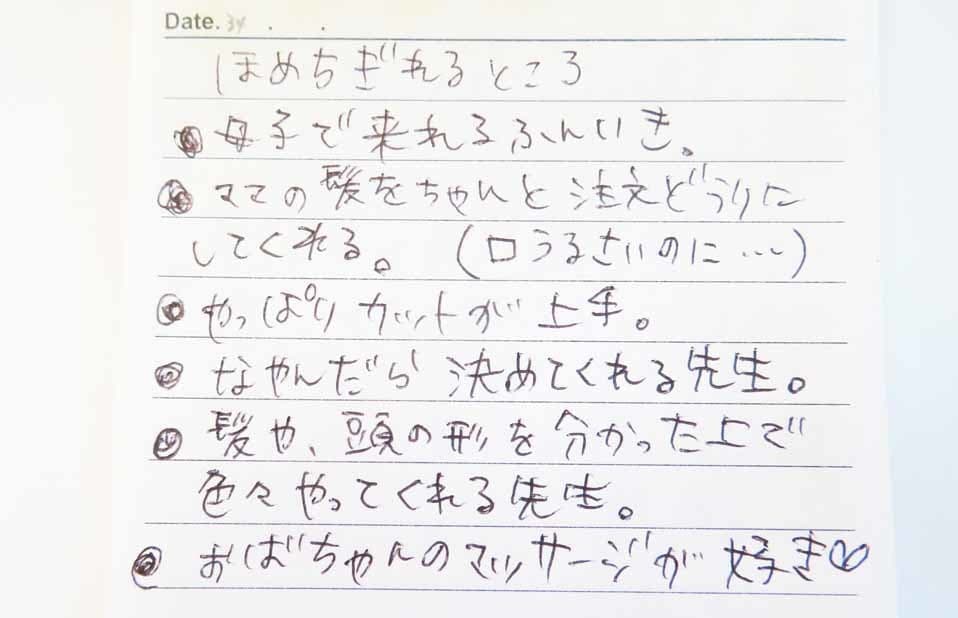 Date. . .
ほめちぎれるところ
● 母子で来れるふんいき。
● ママの髪をちゃんと注文どうりに
してくれる。 (口うるさいのに…)
● やっぱりカットが上手。
● なやんだら決めてくれる先生。
● 髪や、頭の形を分かった上で
色々やってくれる先生。
● おばちゃんのマッサージが好き♡